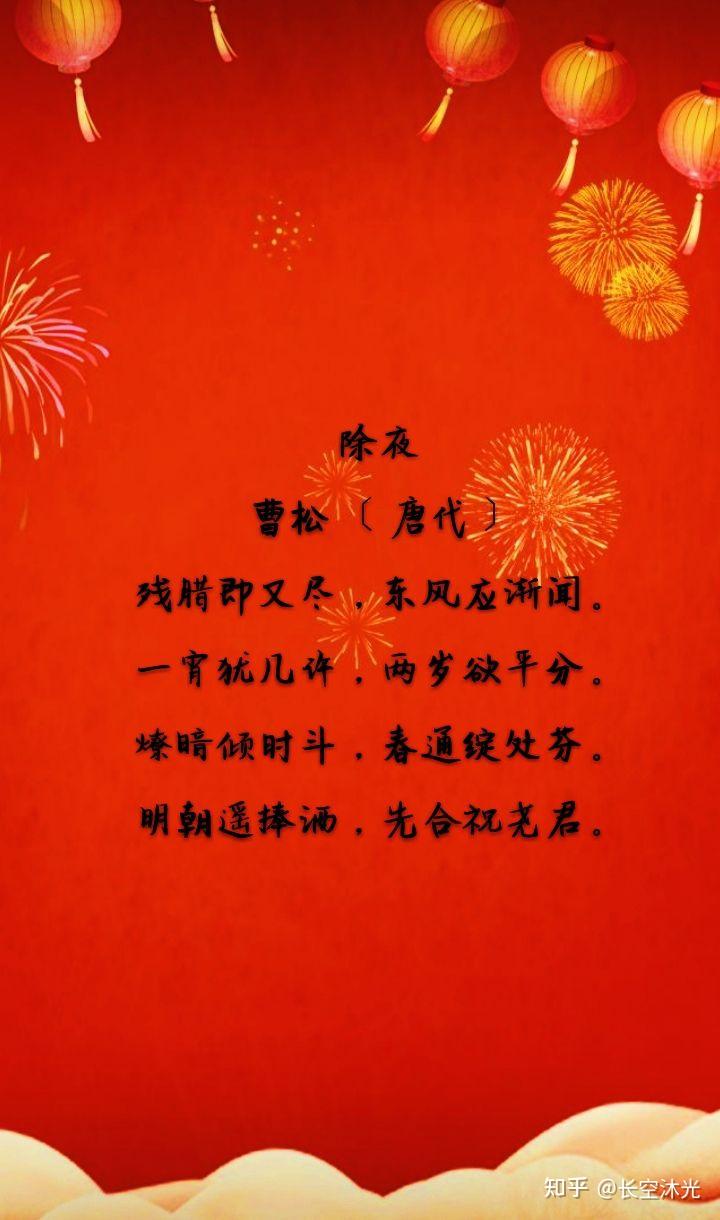 除夜
曹松〔唐代〕
残腊即又尽，东风应渐闻。
一宵犹几许，两岁欲平分。
燎暗倾时斗，春通绽处芬。
明朝遥捧酒，先合祝尧君。
知乎 @长空沐光